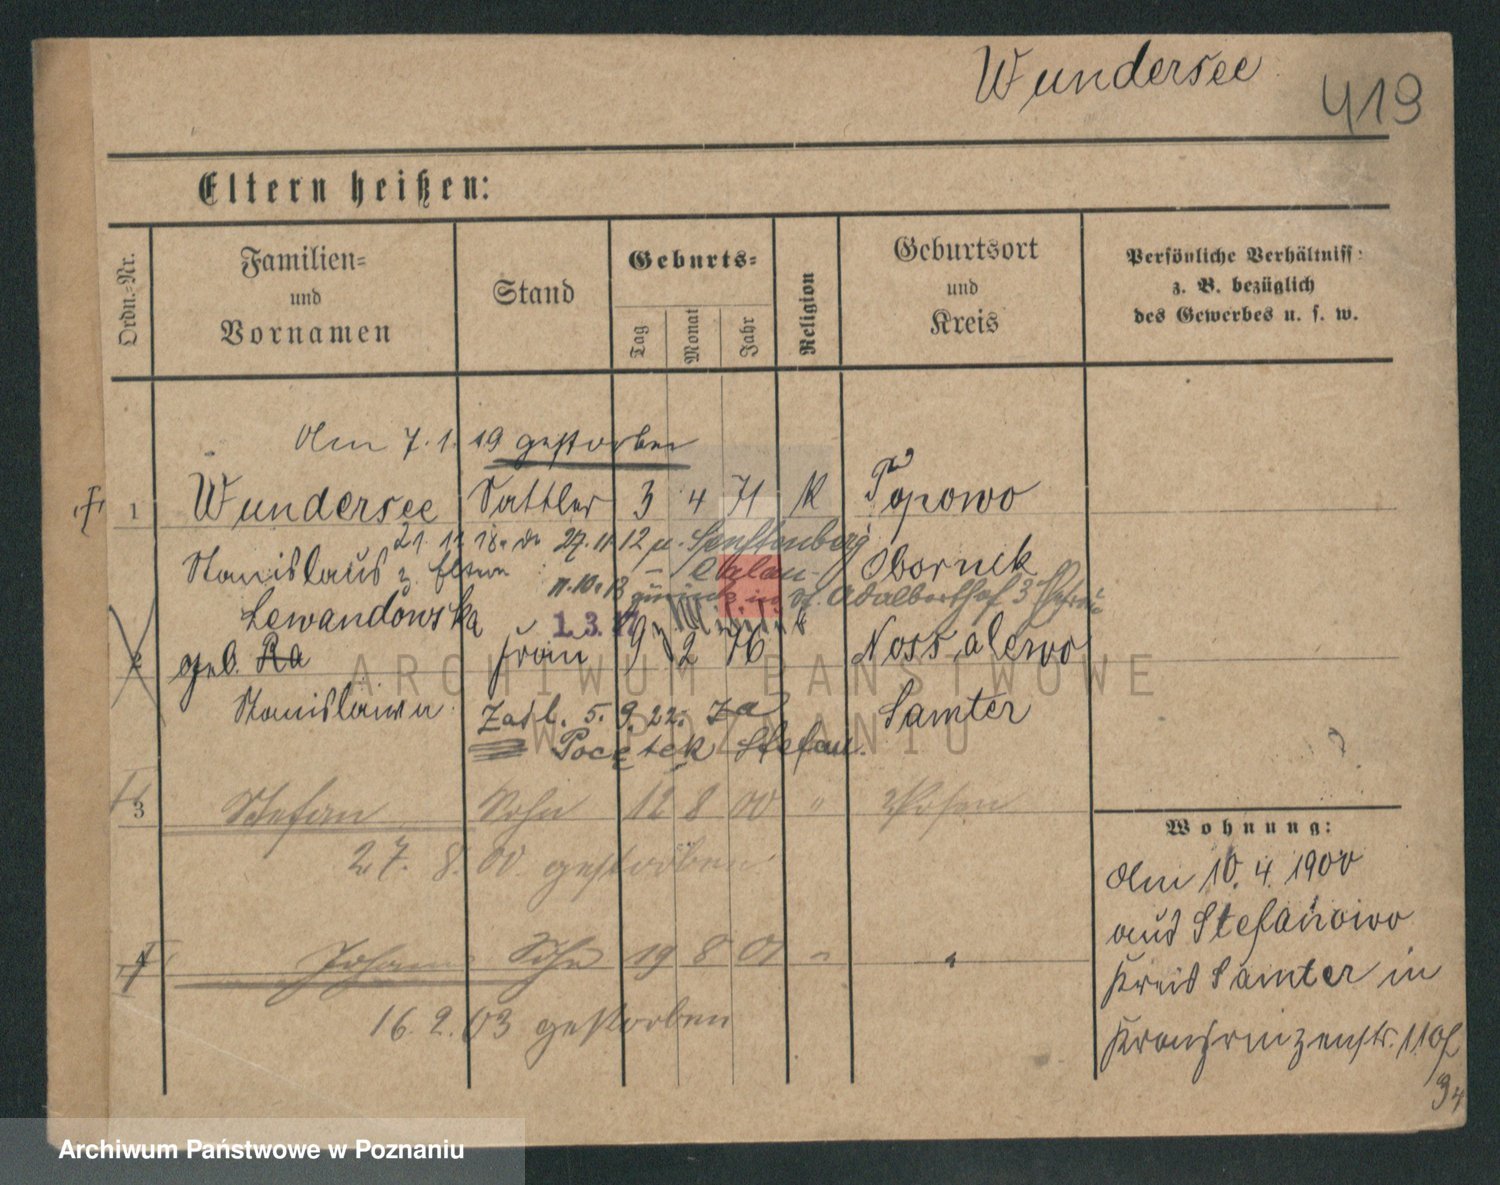 Wundersee
419
Eltern heißen:
Ordn.=Nr.
Familien=
und
Vornamen
Stand
Geburts=
Tag
Monat
Jahr
Religion
Geburtsort
und
Kreis
Persönliche Verhältniss:
z. B. bezüglich
des Gewerbes u. s. w.
Am 7. 1. 19 gestorben
1 Wundersee Sattler 3 4 71 K Popowo
21. 11 12 u. Senftenberg
Stanislaus Obornik
z. Eltern Calau
St. Adalberthof 3
Lewandowska 1.3.
2 geb. Ra Frau 9 2 76 Nossalewo
Stanislawa Samter
Zasl. 5. 9. 22. za
Pocętek Stefan.
3 Stefan Sohn 12 8 00 " Posen
27. 8. 00. gestorben
4 Johann Sohn 19 8 01 "
16. 2. 03 gestorben
Wohnung:
Am 10. 4. 1900
aus Stefanowo
Kreis Samter in
Kronprinzenstr. 110
34
ARCHIWUM PAŃSTWOWE
W POZNANIU
Archiwum Państwowe w Poznaniu